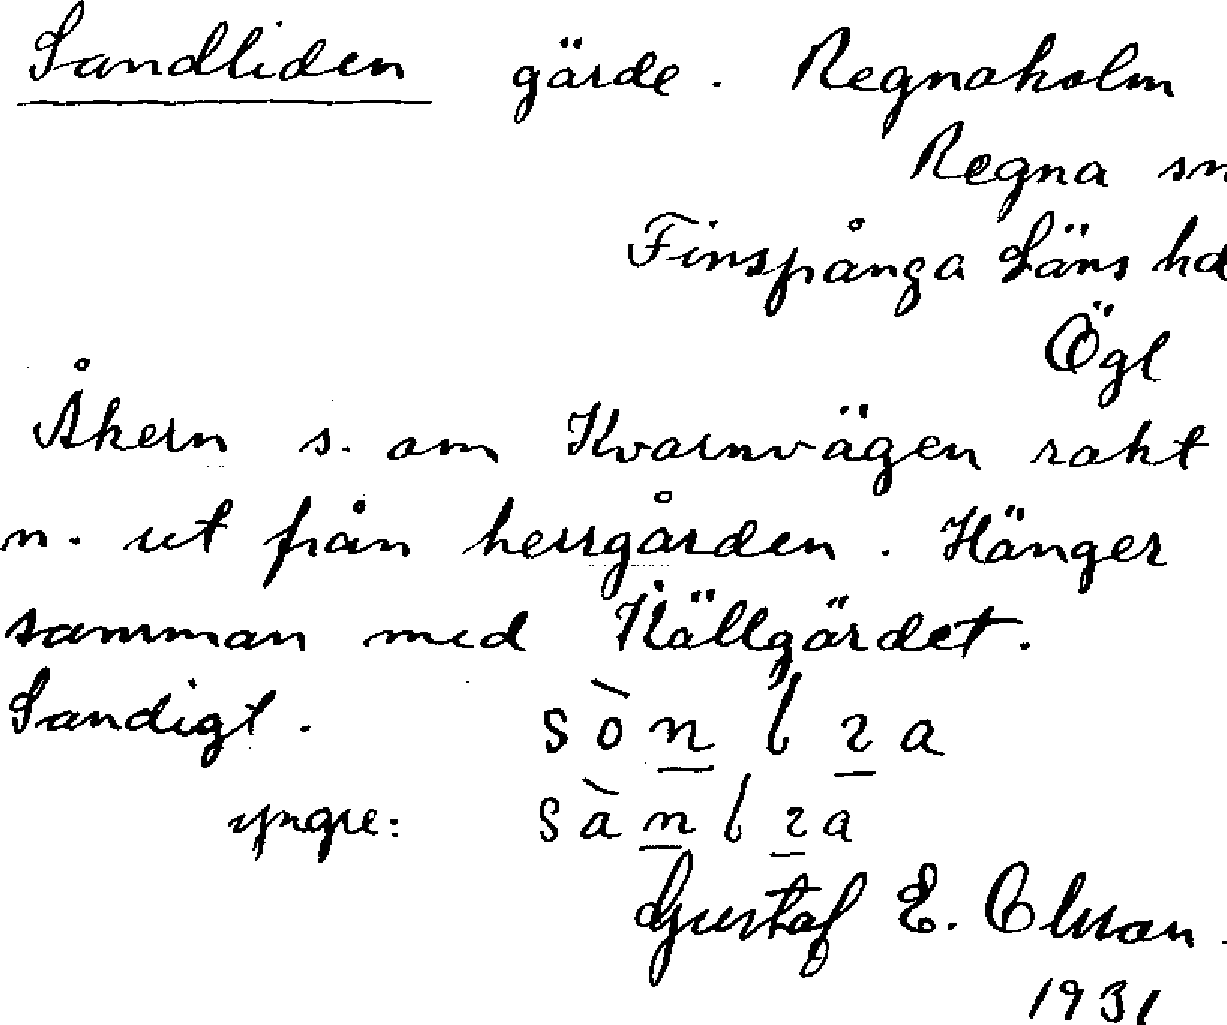 Sandliden gärde. Regnaholm
Regna sn
Finspånga Läns hd
Ögl
Åkern s. om Kvarnvägen rakt
n. ut från herrgården. Hänger
samman med Källgärdet.
Sandigt.
yngre:
Gustaf E. Olsson.
1931